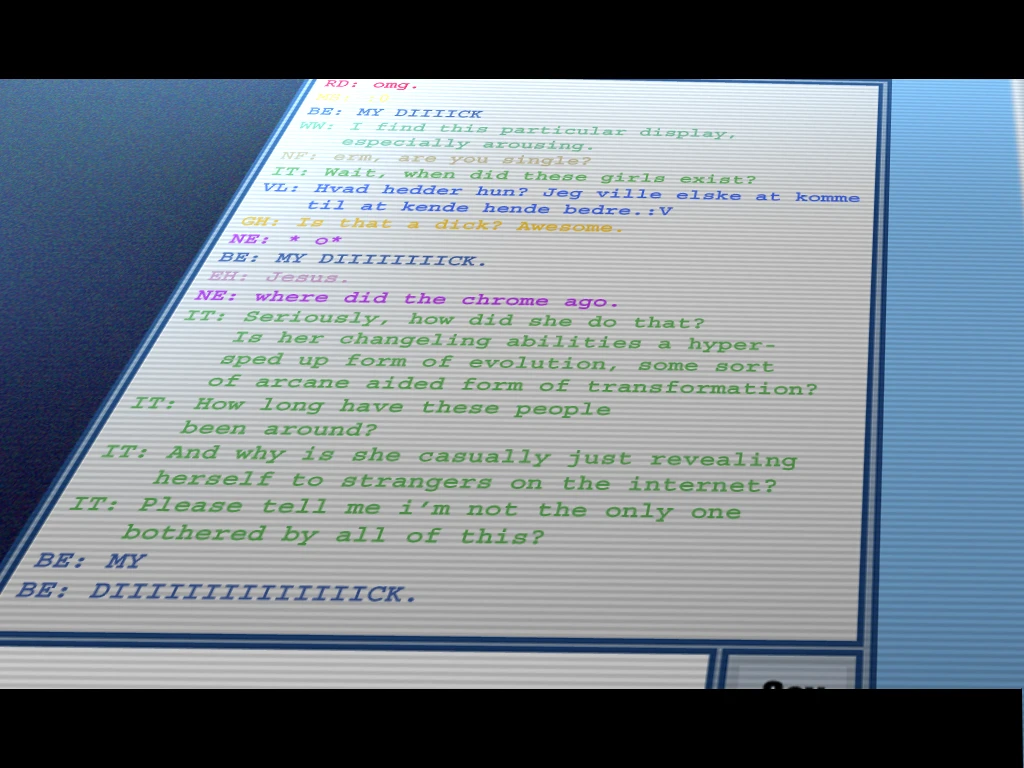 RD: omg.
BE: MY DIIIICK
WW: I find this particular display,
especially arousing.
NF: erm, are you single?
IT: Wait, when did these girls exist?
VL: Hvad hedder hun? Jeg ville elske at komme
til at kende hende bedre.:V
GH: Is that a dick? Awesome.
NE: * o*
BE: MY DIIIIIIIICK.
EH: Jesus.
NE: where did the chrome ago.
IT: Seriously, how did she do that?
Is her changeling abilities a hyper-
sped up form of evolution, some sort
of arcane aided form of transformation?
IT: How long have these people
been around?
IT: And why is she casually just revealing
herself to strangers on the internet?
IT: Please tell me i'm not the only one
bothered by all of this?
BE: MY
BE: DIIIIIIIIIIIIIIICK.